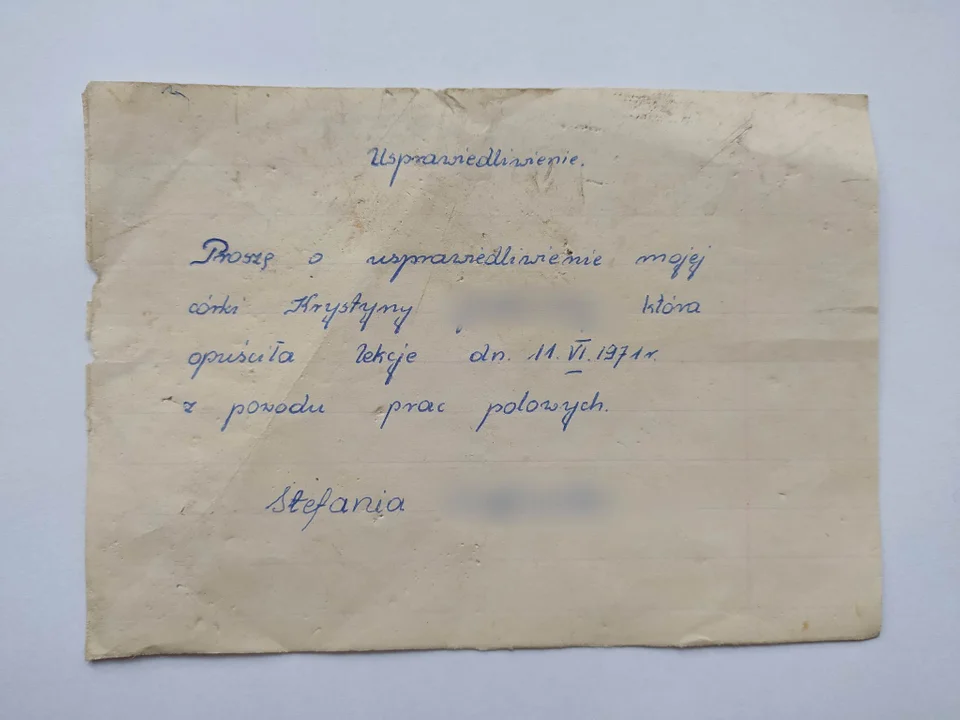 Usprawiedliwienie.
Proszę o usprawiedliwienie mojej
córki Krystyny która
opuściła lekcje dn. 11.VI.1971r.
z powodu prac polowych.
Stefania